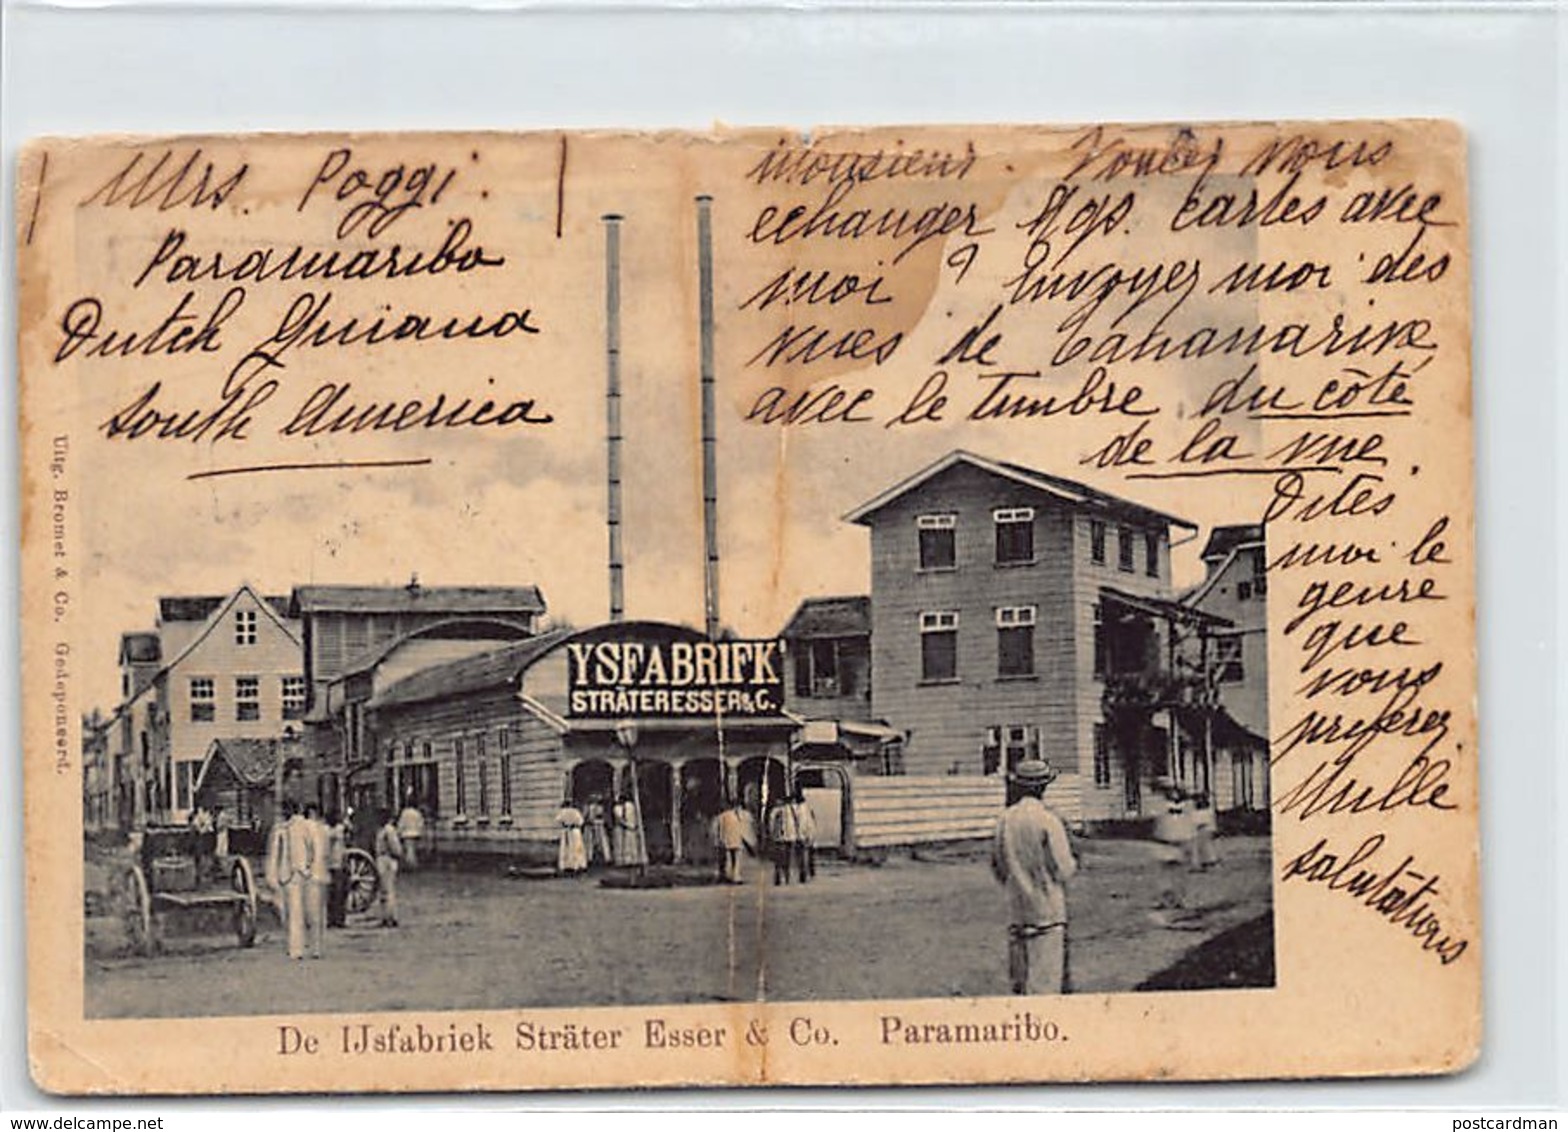 Mrs. Poggi.
Paramaribo
Dutch Guiana
South America
Monsieur. Voulez vous
echanger qqs. cartes avec
moi ? Envoyez moi des
vues de Tananarive,
avec le timbre du côté
de la vue.
Dites
moi le
genre
que
vous
preferez
Mille
salutations
Uitg. Bromet & Co. Gedeponeerd.
YSFABRIEK
STRÄTER ESSER & C.
De IJsfabriek Sträter Esser & Co. Paramaribo.
postcardman